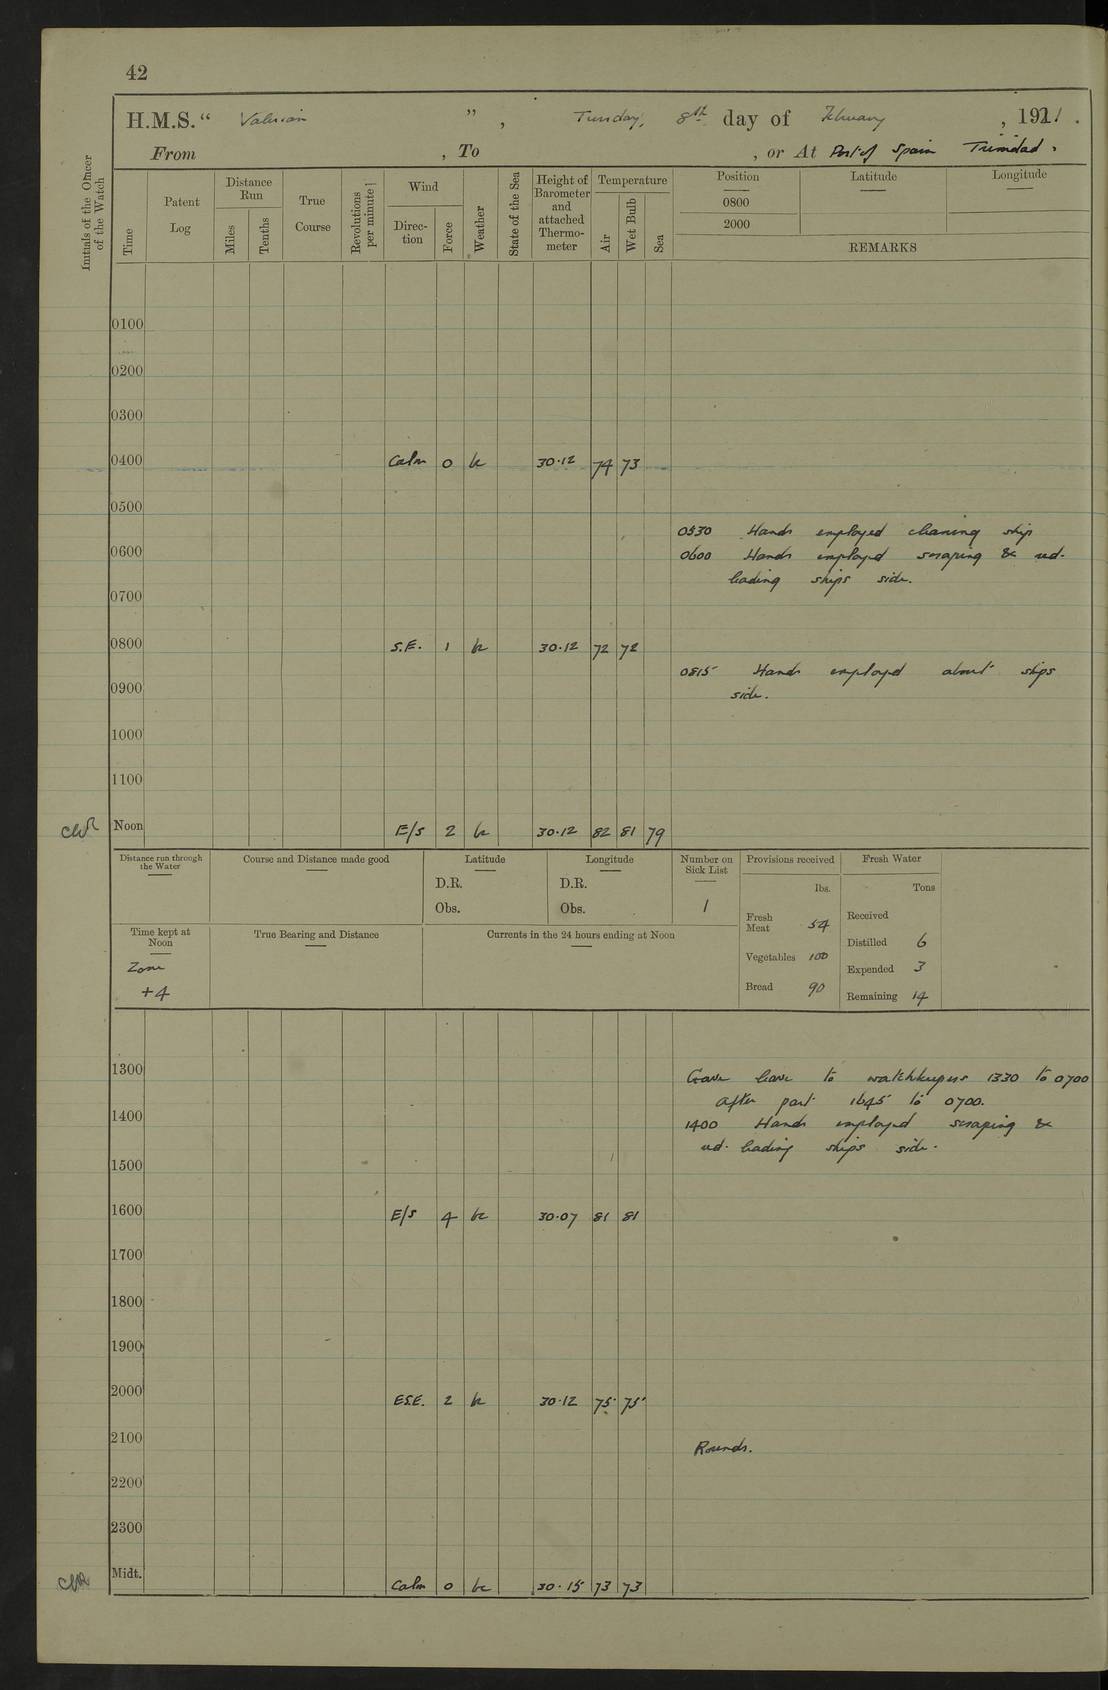 42
H.M.S. “ Valerian ” , Tuesday, 8th day of February , 1921 .
From , To , or At Port of Spain Trinidad .
Initials of the Officer of the Watch
Time
Patent Log
Distance Run
Miles
Tenths
True Course
Revolutions per minute
Wind
Direc-tion
Force
Weather
State of the Sea
Height of Barometer and attached Thermo-meter
Temperature
Air
Wet Bulb
Sea
Position
0800
2000
Latitude
Longitude
REMARKS
0100
0200
0300
0400 Calm 0 bc 30.12 74 73
0500
0530 Hands employed cleaning ship
0600 Hands employed scraping & red.
leading ships side.
0700
0800 S.E. 1 bc 30.12 72 72
0815 Hands employed about ships
0900
side.
1000
1100
Noon E/S 2 bc 30.12 82 81 79
Distance run through the Water
Course and Distance made good
Latitude
D.R.
Obs.
Longitude
D.R.
Obs.
Number on Sick List
1
Provisions received
lbs.
Fresh Meat 54
Vegetables 100
Bread 90
Fresh Water
Tons
Received
Distilled 6
Expended 3
Remaining 14
Time kept at Noon
Zone
+4
True Bearing and Distance
Currents in the 24 hours ending at Noon
1300
Gave leave to watchkeepers 1330 to 0700
after part 1645 to 0700.
1400 Hands employed scraping &
red. leading ships side.
1500
1600 E/S 4 bc 30.07 81 81
1700
1800
1900
2000 E.S.E. 2 bc 30.12 75 75
2100 Rounds.
2200
2300
Midt. Calm 0 bc 30.15 73 73